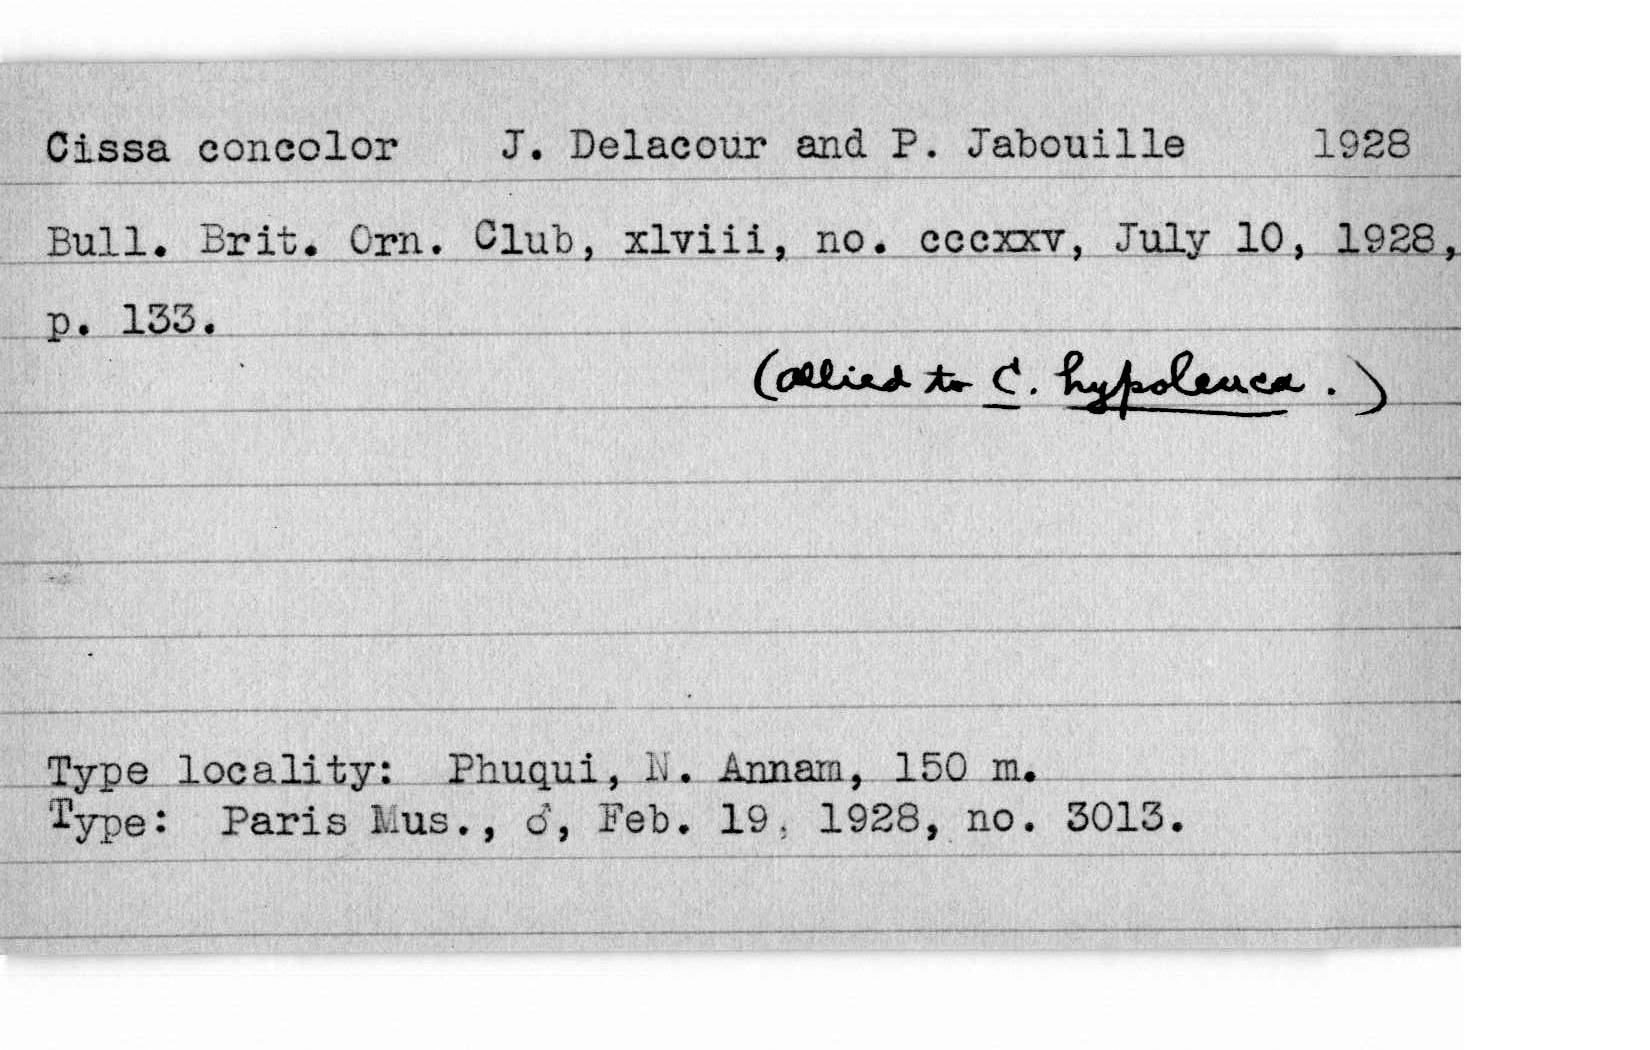 Cissa concolor J. Delacour and P. Jabouille 1928
Bull. Brit. Orn. Club, xlviii, no. cccxxv, July 10, 1928,
p. 133.
(allied to C. hypoleuca.)
Type locality: Phuqui, N. Annam, 150 m.
Type: Paris Mus., ♂, Feb. 19, 1928, no. 3013.